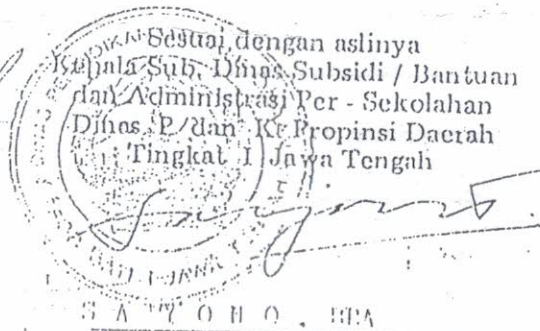 Sesuai dengan aslinya
Kepala Sub. Dinas Subsidi / Bantuan
dan Administrasi Per - Sekolahan
Dinas P dan K Propinsi Daerah
Tingkat I Jawa Tengah
S A Y O N O , BBA